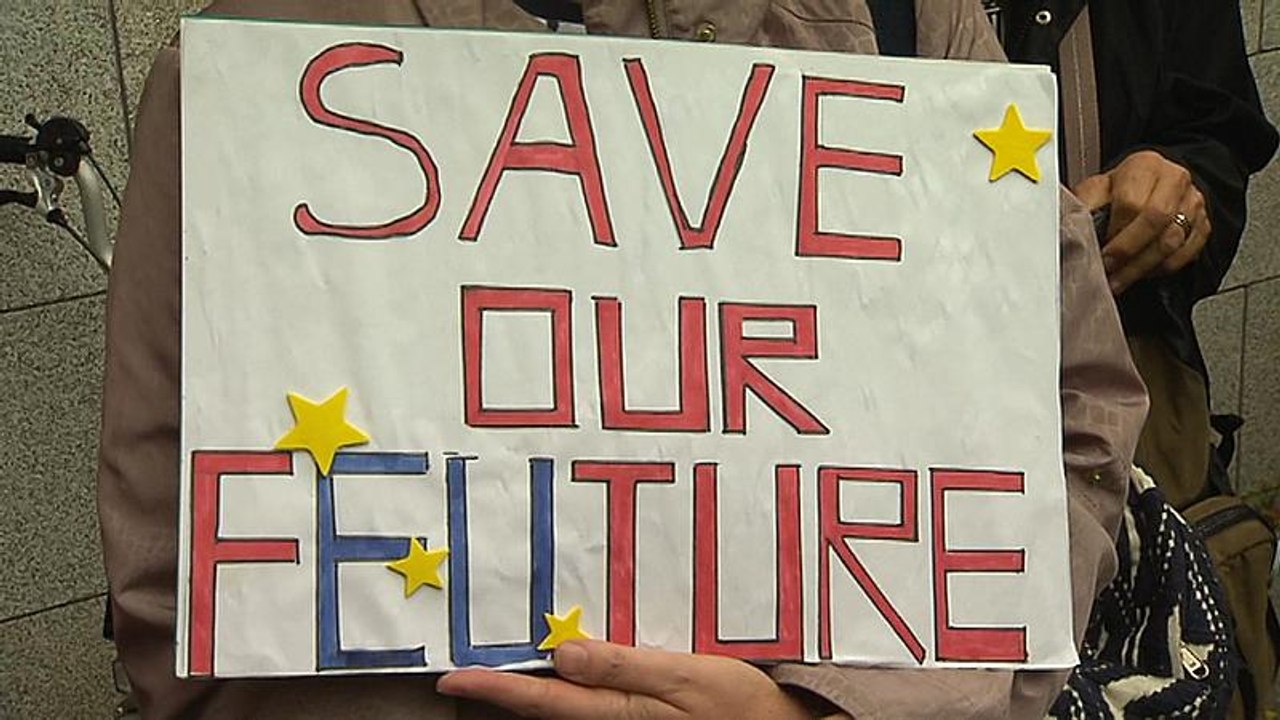 SAVE
OUR
FEUTURE